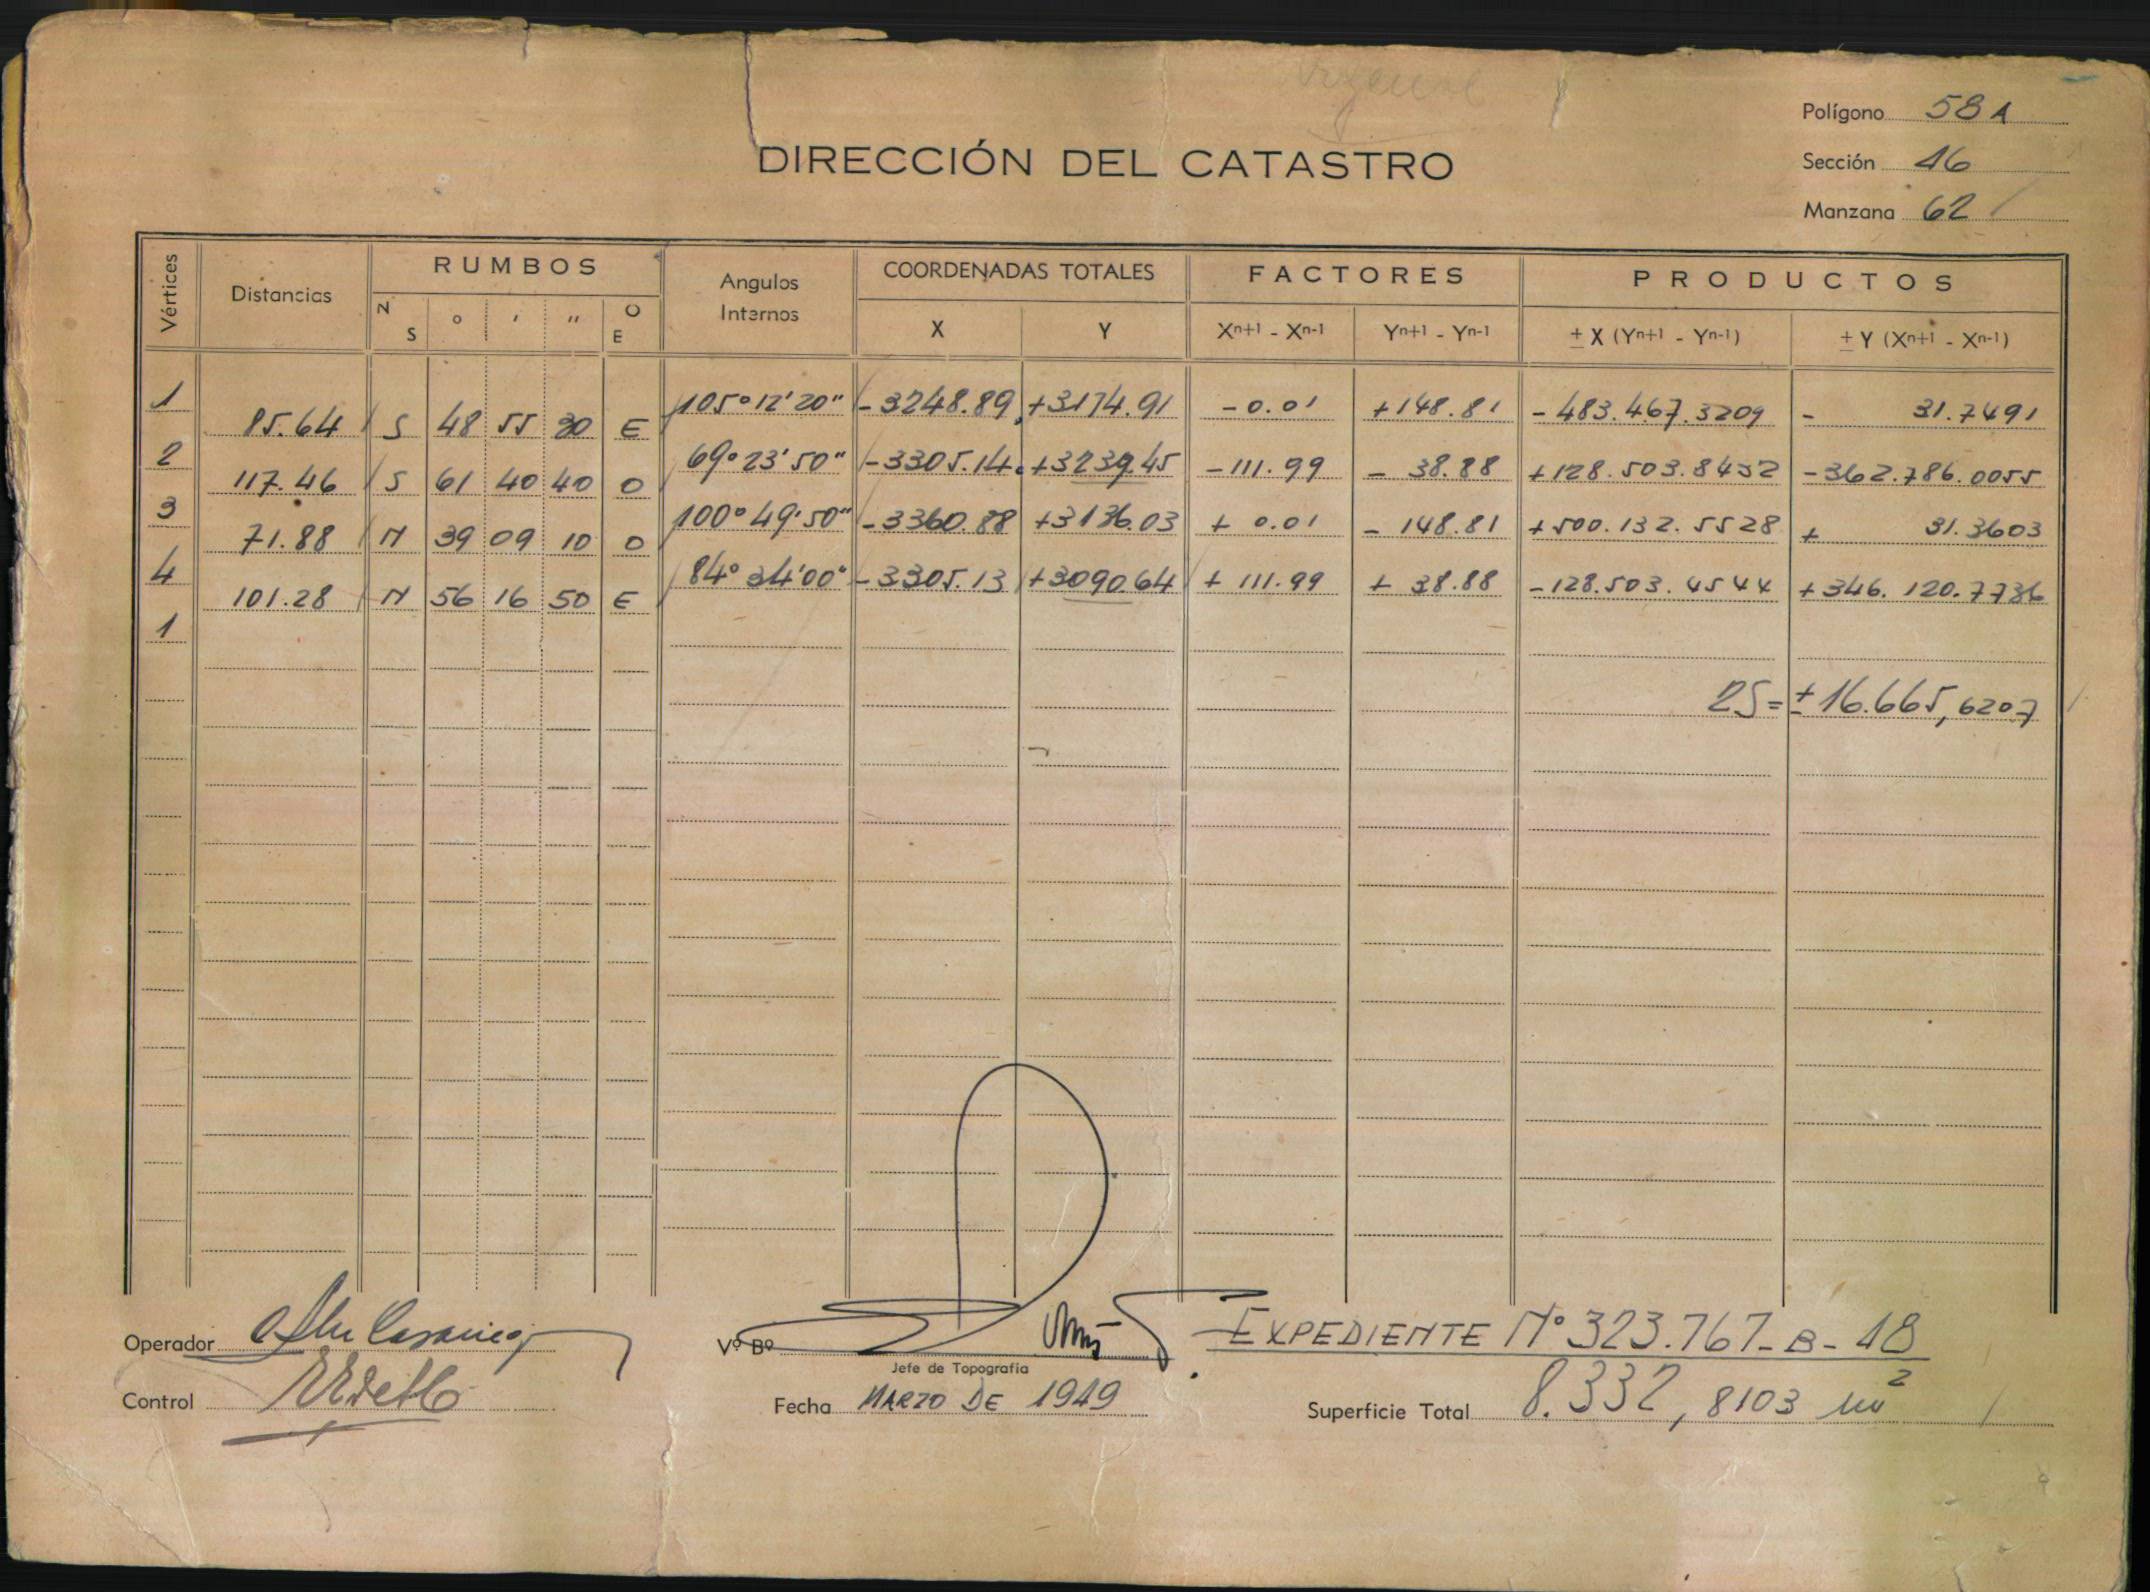 Polígono 58 A
DIRECCIÓN DEL CATASTRO
Sección 16
Manzana 62
Vértices Distancias RUMBOS Angulos Internos COORDENADAS TOTALES FACTORES PRODUCTOS
N S ° ' " O E X Y Xn+1 - Xn-1 Yn+1 - Yn-1 ± X (Yn+1 - Yn-1) ± Y (Xn+1 - Xn-1)
1 105° 12' 20" -3248.89 +3174.91 -0.01 +148.81 -483.467.3209 - 31.7491
85.64 S 48 55 30 E
2 69° 23' 50" -3305.14 +3239.45 -111.99 - 38.88 +128.503.8432 -362.786.0055
117.46 S 61 40 40 O
3 100° 49' 50" -3360.88 +3136.03 + 0.01 - 148.81 +500.132.5528 + 31.3603
71.88 N 39 09 10 O
4 84° 34' 00" -3305.13 +3090.64 + 111.99 + 38.88 -128.503.4544 +346.120.7736
101.28 N 56 16 50 E
1
2S = ± 16.665,6207
Operador
Vº Bº
EXPEDIENTE Nº 323.767-B-48
Jefe de Topografía
Control
Fecha MARZO DE 1949
Superficie Total 8.332,8103 m²